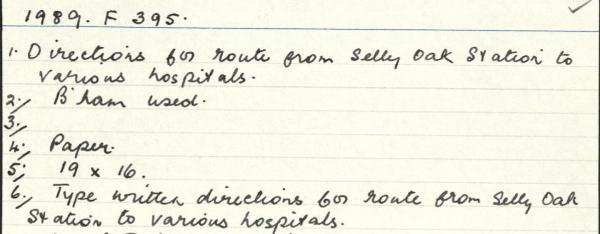 1989. F 395.
1. Directions for route from Selly Oak Station to
various hospitals.
2. B'ham used.
3.
4. Paper.
5. 19 x 16.
6. Type written directions for route from Selly Oak
Station to various hospitals.